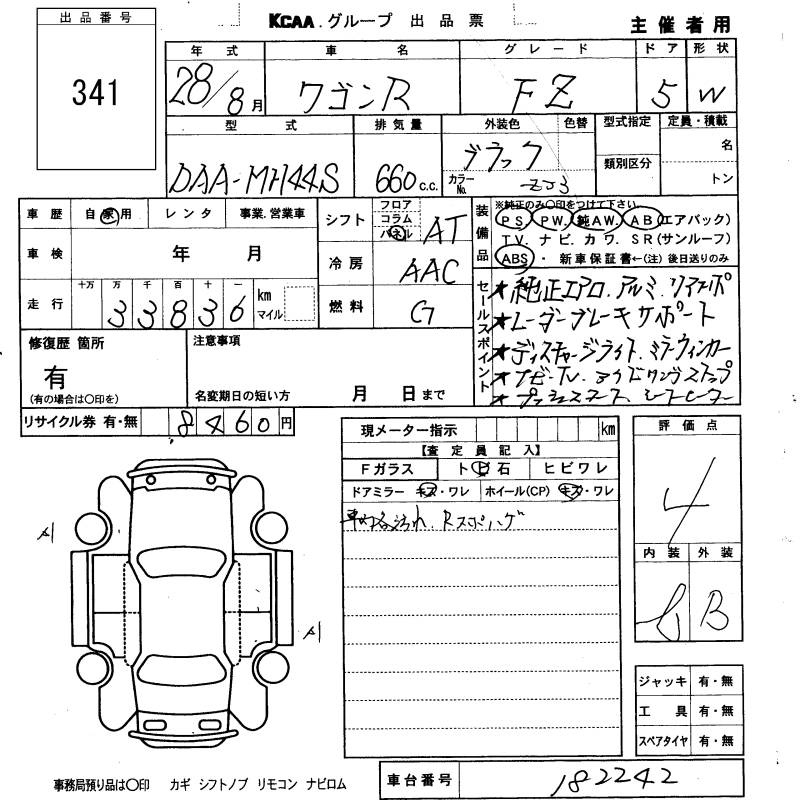 出品番号
341
KCAA.グループ 出品票
主催者用
年式 車名 グレード ドア 形状
28/8月 ワゴンR FZ 5 W
型式 排気量 外装色 色替 型式指定 定員・積載
DAA-MH44S 660c.c. ブラック
カラーNo. Z J 3
類別区分
名
トン
車歴 自家用 レンタ 事業.営業車
シフト フロア コラム パネル AT
装備品
※純正のみ〇印をつけて下さい
PS PW. 純AW. AB(エアバック)
TV. ナビ. カワ. SR(サンルーフ)
ABS・新車保証書←(注)後日送りのみ
車検 年 月
冷房 AAC
走行 十万 万 千 百 十 一
33836 km マイル
燃料 G
セールスポイント
★純正エアロ.アルミ.リアスポ
★レーダーブレーキサポート
★ディスチャージライト.ミラーウィンカー
★ナビ・TV.アイドリングストップ
★プッシュスタート シートヒーター
修復歴 箇所
有
(有の場合は〇印を)
注意事項
名変期日の短い方 月 日まで
リサイクル券 有・無 8460円
現メーター指示 km
【査定員記入】
Fガラス トビ石 ヒビワレ
ドアミラー キズ・ワレ ホイール(CP) キズ・ワレ
車内各汚れ.Rスポハゲ
評価点
4
内装 外装
B
A1
A1
ジャッキ 有・無
工具 有・無
スペアタイヤ 有・無
事務局預り品は〇印 カギ シフトノブ リモコン ナビロム
車台番号 182242